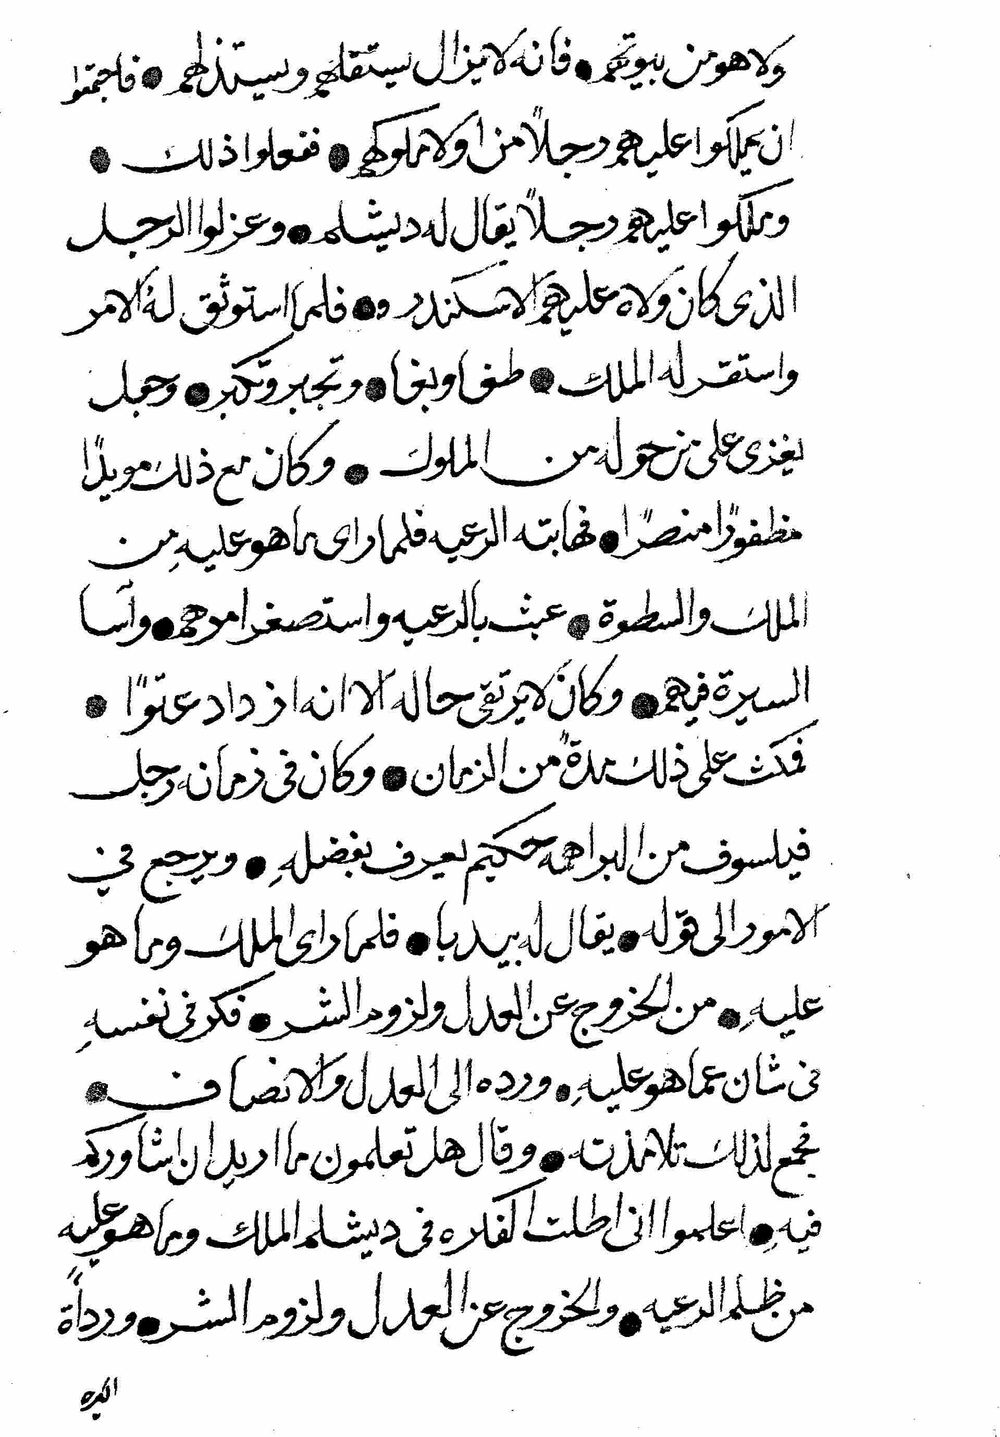 ولا هو من بيوتهم ● فانه لا يزال يستقلهم ويستذلهم ● فاجتمعوا
ان يملكوا عليهم رجلاً من اولاد ملوكهم ● ففعلوا ذلك ●
وملكوا عليهم رجلاً يقال له ديشلم ● وعزلوا الرجل
الذى كان ولاه عليهم الاسكندر ● فلما استوثق له الامر
واستقر له الملك ● طغا وبغا ● وتجبر وتكبر ● وجعل
يغزى على من حوله من الملوك ● وكان مع ذلك مويدًا
مظفورًا منصرًا ● فهابته الرعيه فلما راى ما هو عليه من
الملك والسطوة ● عبث بالرعيه واستصغر امرهم ● وآسا
السيرة فيهم ● وكان لا يرتقى حاله الا انه ازداد عتوًا ●
فمكث على ذلك مدةً من الزمان ● وكان فى زمانه رجل
فيلسوف من البراهمه حكيم يعرف بفضلهِ ● ويرجع في
الامور الى قوله ● يقال له بيدبا ● فلما راى الملك وما هو
عليهِ ● من الخروج عن العدل ولزوم الشر ● فكر فى نفسهِ
فى شان عما هو عليهِ ● ورده الى العدل والانصاف ●
فجمع لذلك تلامذته ● وقال هل تعلمون ما اريد ان اشاوركم
فيهِ ● اعلموا انى اطلت الفكره فى ديشلم الملك وما هو عليه
من ظلم الرعيه ● والخروج عن العدل ولزوم الشر ● ورداة